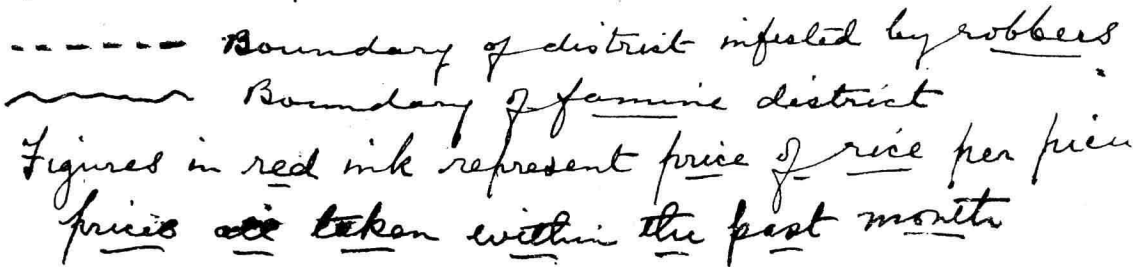 Boundary of district infested by robbers
Boundary of famine district
Figures in red ink represent price of rice per picu
prices all taken within the past month